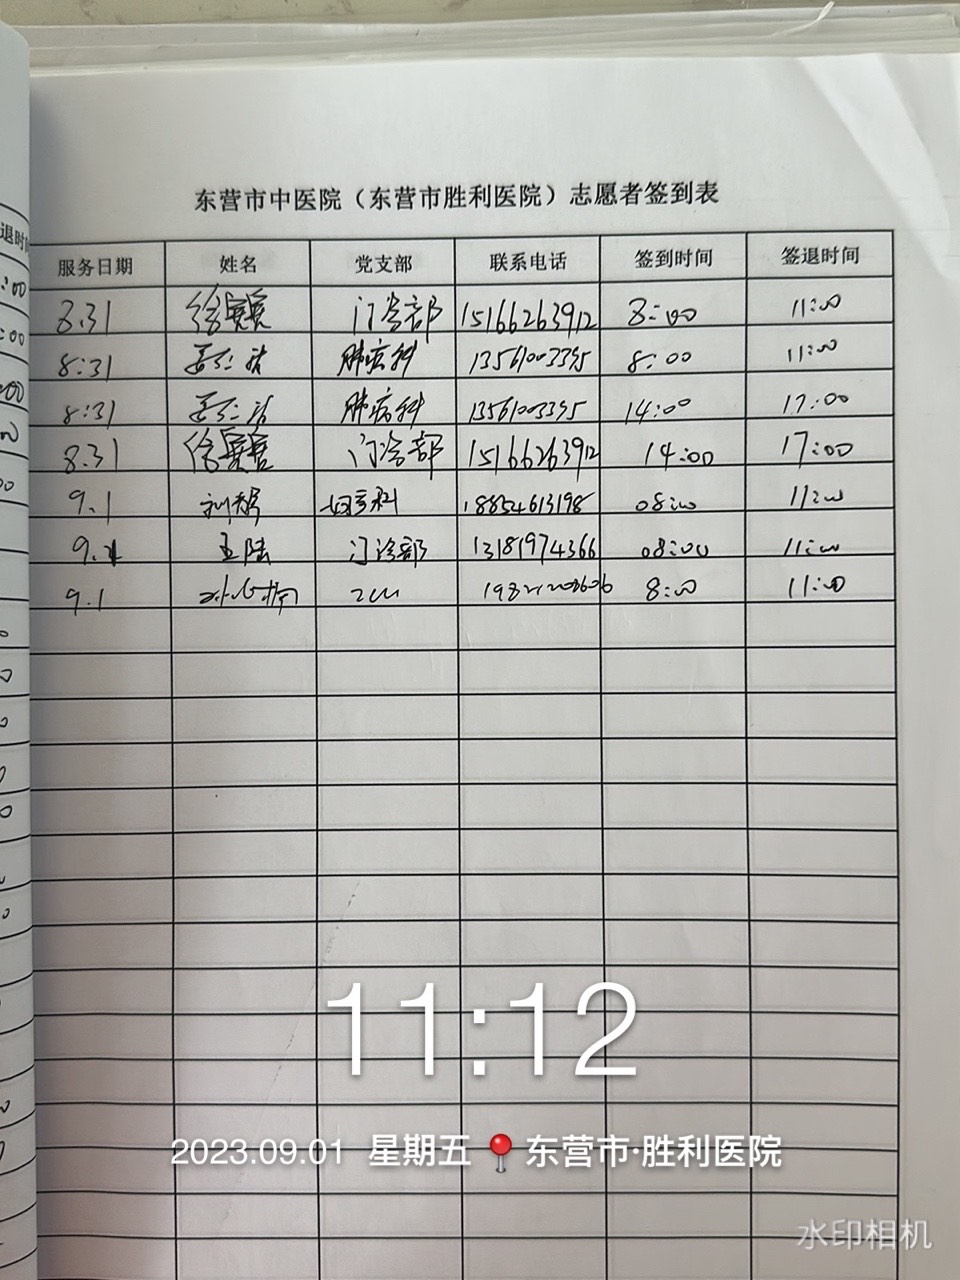 东营市中医院（东营市胜利医院）志愿者签到表
退时
服务日期 姓名 党支部 联系电话 签到时间 签退时间
8.31 徐 门诊部 15166263912 8:00 11:00
8:31 肺病科 13561003395 8:00 11:00
8:31 肺病科 13561003395 14:00 17:00
8.31 徐 门诊部 15166263912 14:00 17:00
9.1 刘 18854613198 08:00 11:00
9.1 王陆 门诊部 13181974366 08:00 11:00
9.1 8:00 11:00
11:12
2023.09.01 星期五 东营市·胜利医院
水印相机